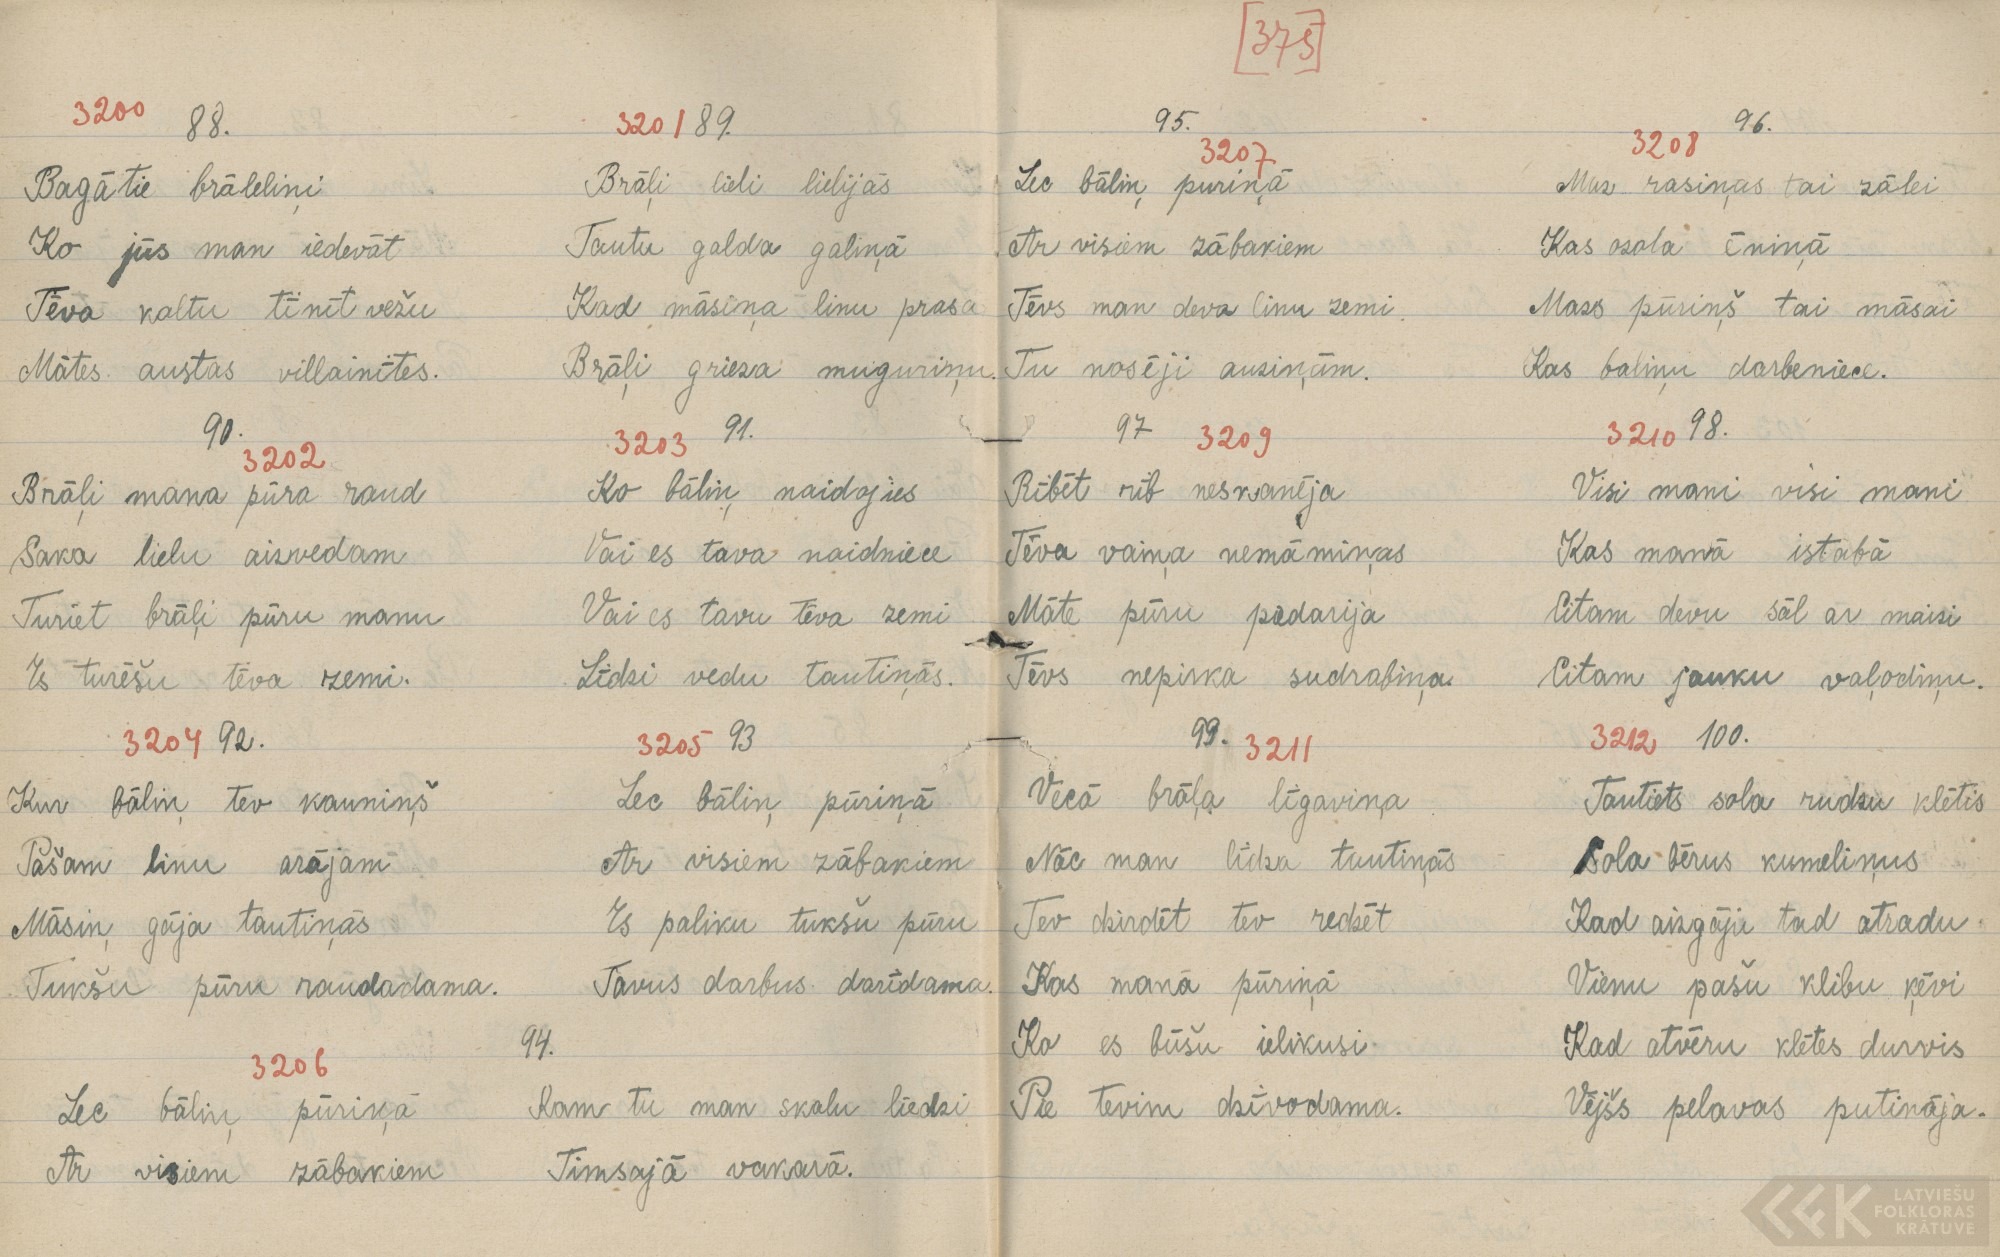 [375]
3200 88.
Bagātie brāleliņi
Ko jūs man iedevāt
Tēva kaltu tīnīt vežu
Mātes austas villainītes.
3201 89.
Brāļi lieli lielijās
Tautu galda galiņā
Kad māsiņa linu prasa
Brāļi grieza muguriņu.
90. 3202
Brāļi mana pūra raud
Saka lielu aizvedam
Turiet brāļi pūru manu
Es turēšu tēva zemi.
3203 91.
Ko bāliņ naidojies
Vai es tava naidniece
Vai es tavu tēva zemi
Līdzi vedu tautiņās.
3204 92.
Kur bāliņ tev kauniņš
Pašam linu arājam
Māsiņ gāja tautiņās
Tukšu pūru raudādama.
3205 93
Lec bāliņ pūriņā
Ar visiem zābakiem
Es paliku tukšu pūru
Tavus darbus darīdama.
3206 94.
Lec bāliņ pūriņā
Ar visiem zābakiem
Kam tu man skalu liedzi
Timsajā vakarā.
95. 3207
Lec bāliņ puriņā
Ar visiem zābakiem
Tēvs man deva linu zemi
Tu nosēji auziņām.
3208 96.
Maz rasiņas tai zālei
Kas ozola ēniņā
Mazs pūriņš tai māsai
Kas baliņu darbeniece.
97 3209
Rībēt rīb neskanēja
Tēva vaiņa nemāmiņas
Māte pūru padarija
Tēvs nepirka sudrabiņa.
3210 98.
Visi mani visi mani
Kas manā istabā
Citam devu sāl ar maizi
Citam jauku vaļodiņu.
99. 3211
Vecā brāļa līgaviņa
Nāc man līdza tautiņās
Tev dzirdēt tev redzēt
Kas manā pūriņā
Ko es būšu ielikusi
Pie tevim dzīvodama.
3212 100.
Tautiets sola rudzu klētis
Sola bērus kumeliņus
Kad aizgāju tad atradu
Vienu pašu klibu ķēvi
Kad atvēru klētes durvis
Vējšs pelavas putināja.
LATVIEŠU
FOLKLORAS
KRĀTUVE